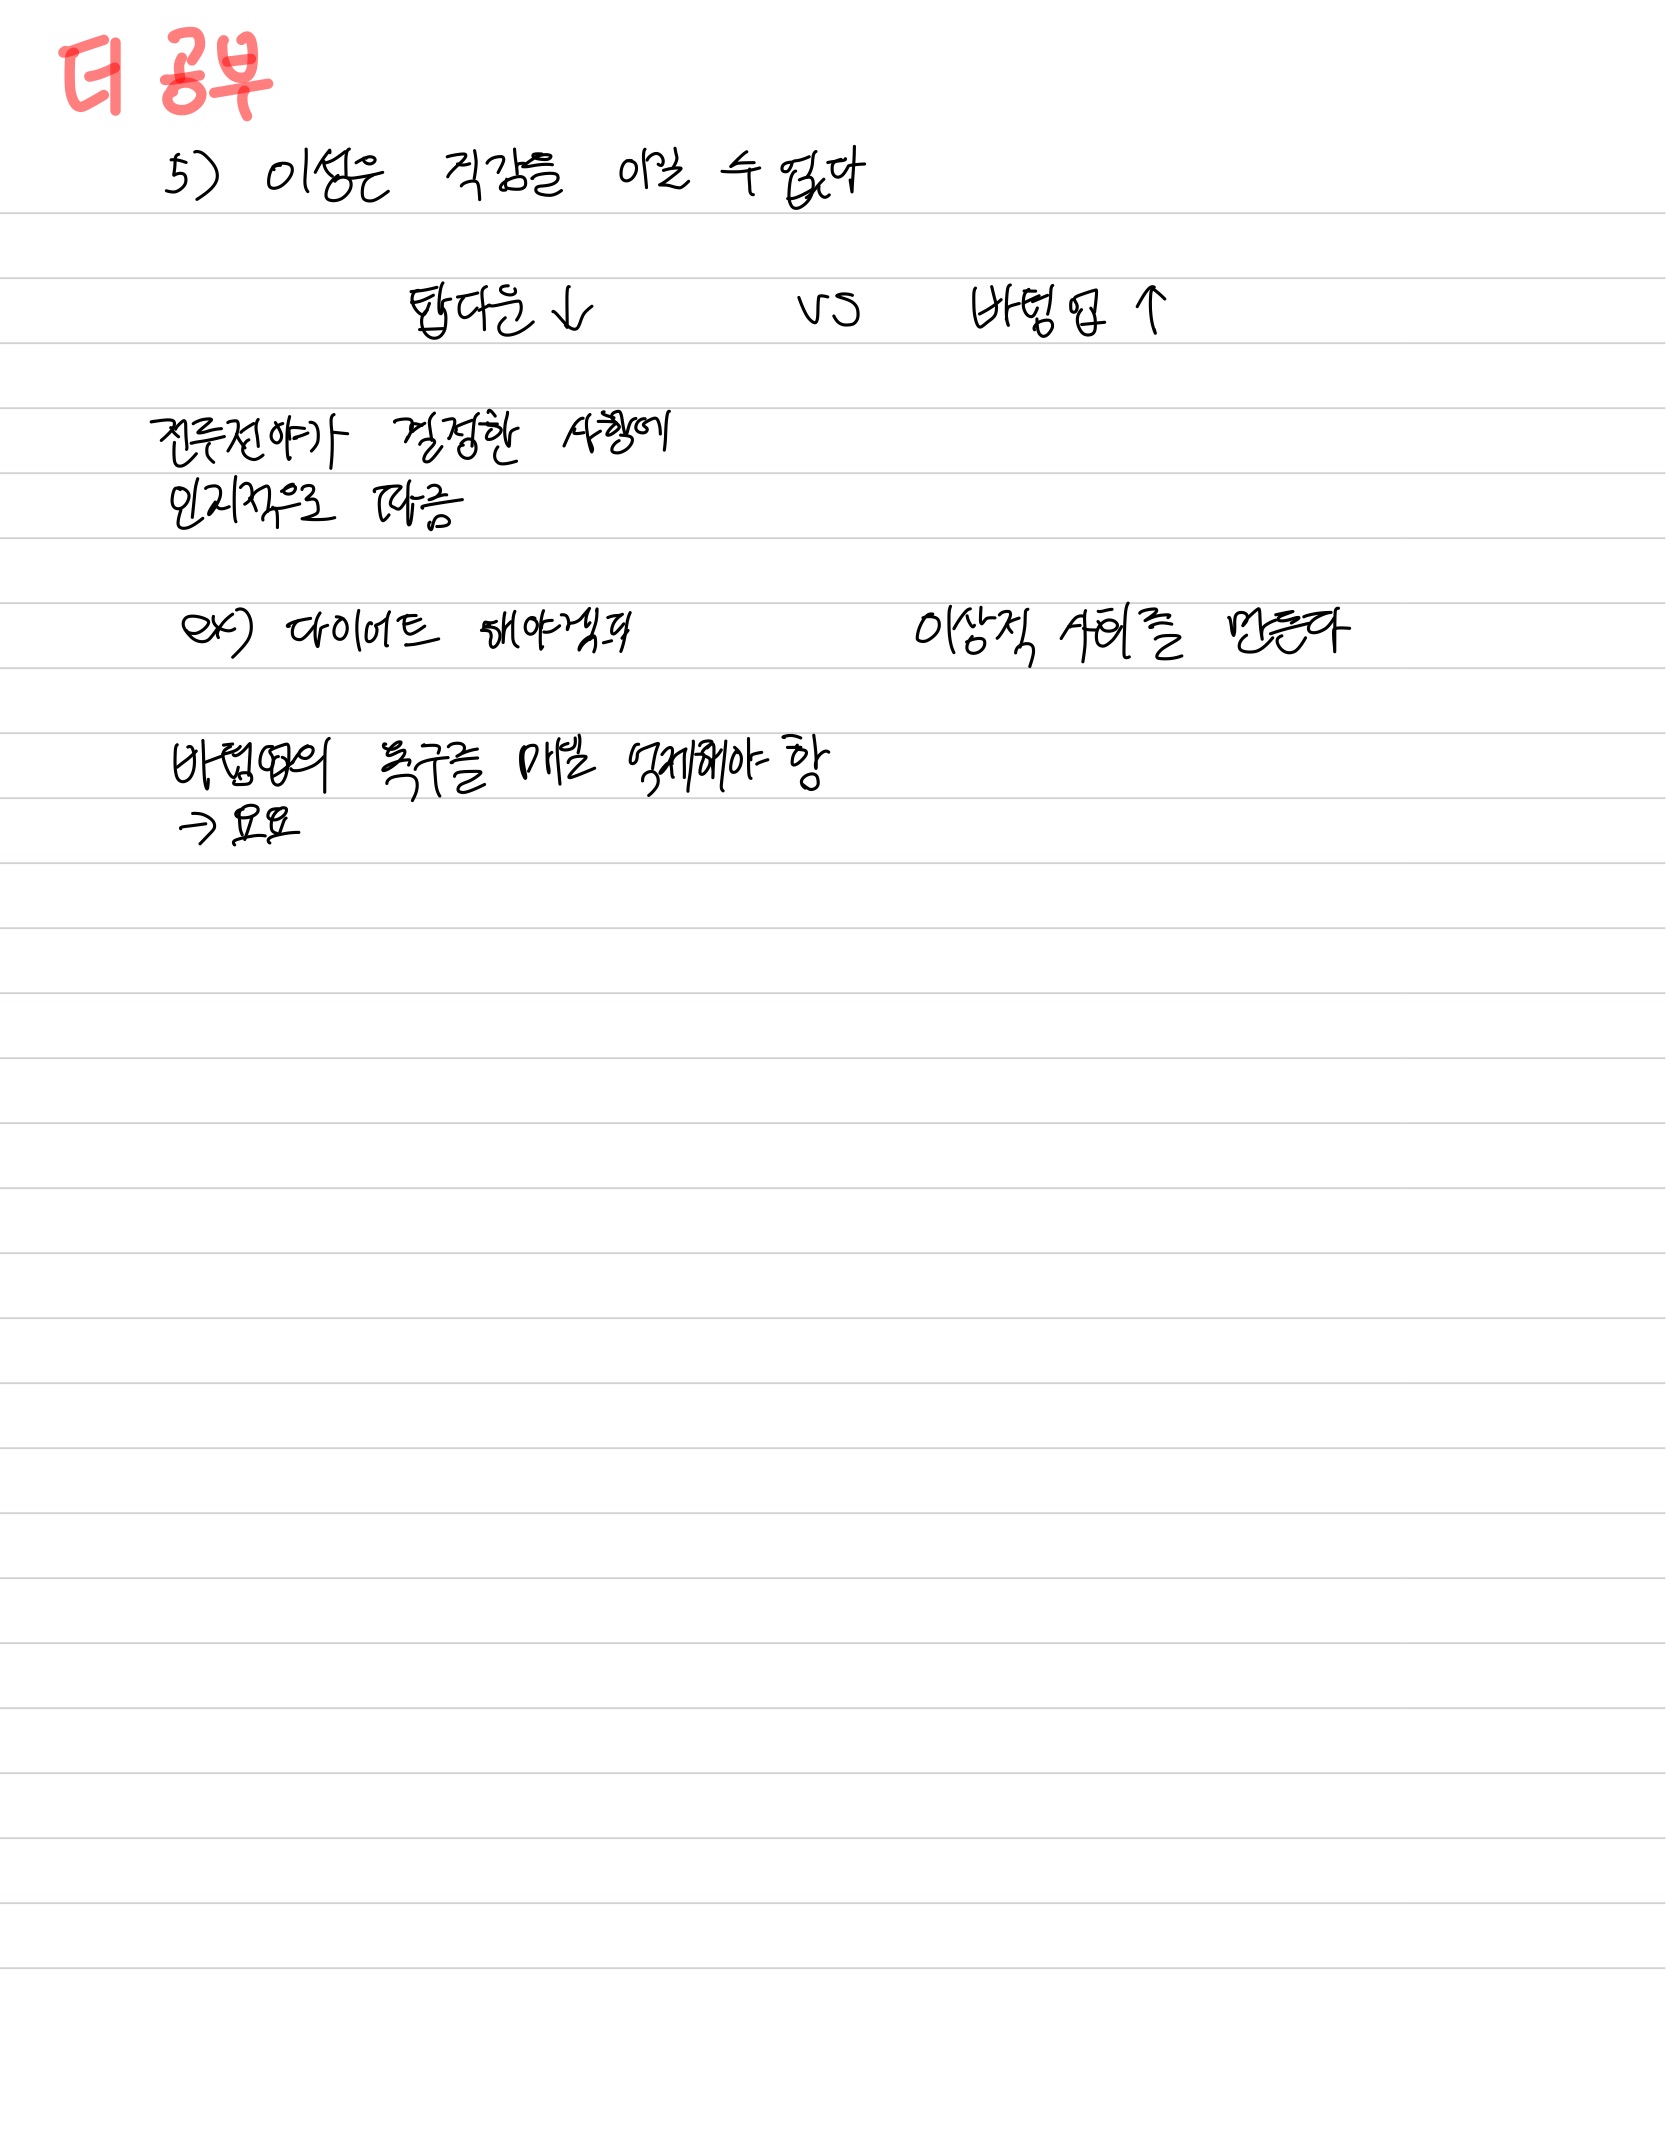 더 공부
5) 이성은 직감을 이길 수 없다
탑다운 ↓ vs 바텀업 ↑
전두전야가 결정한 사항에
인지적으로 따름
ex) 다이어트 해야겠다 이상적 사회를 만든다
바텀업의 욕구를 매번 억제해야 함
→ 요요